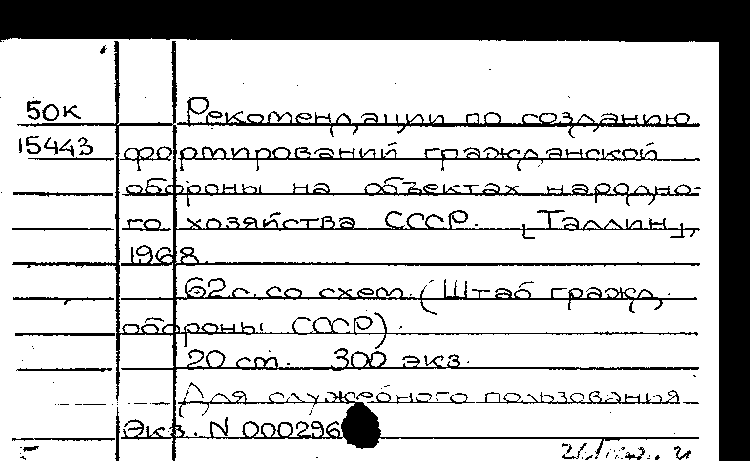 50К Рекомендации по созданию
15443 формирований гражданской
обороны на объектах народно-
го хозяйства СССР. [Таллин],
1968.
62 с. со схем. (Штаб гражд.
обороны СССР).
20 см. 300 экз.
Для служебного пользования
Экз. N 000296